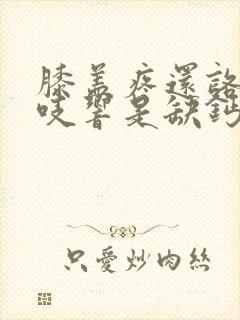 膝盖疼還詻
吱響是缺鈣
只愛炒肉絲